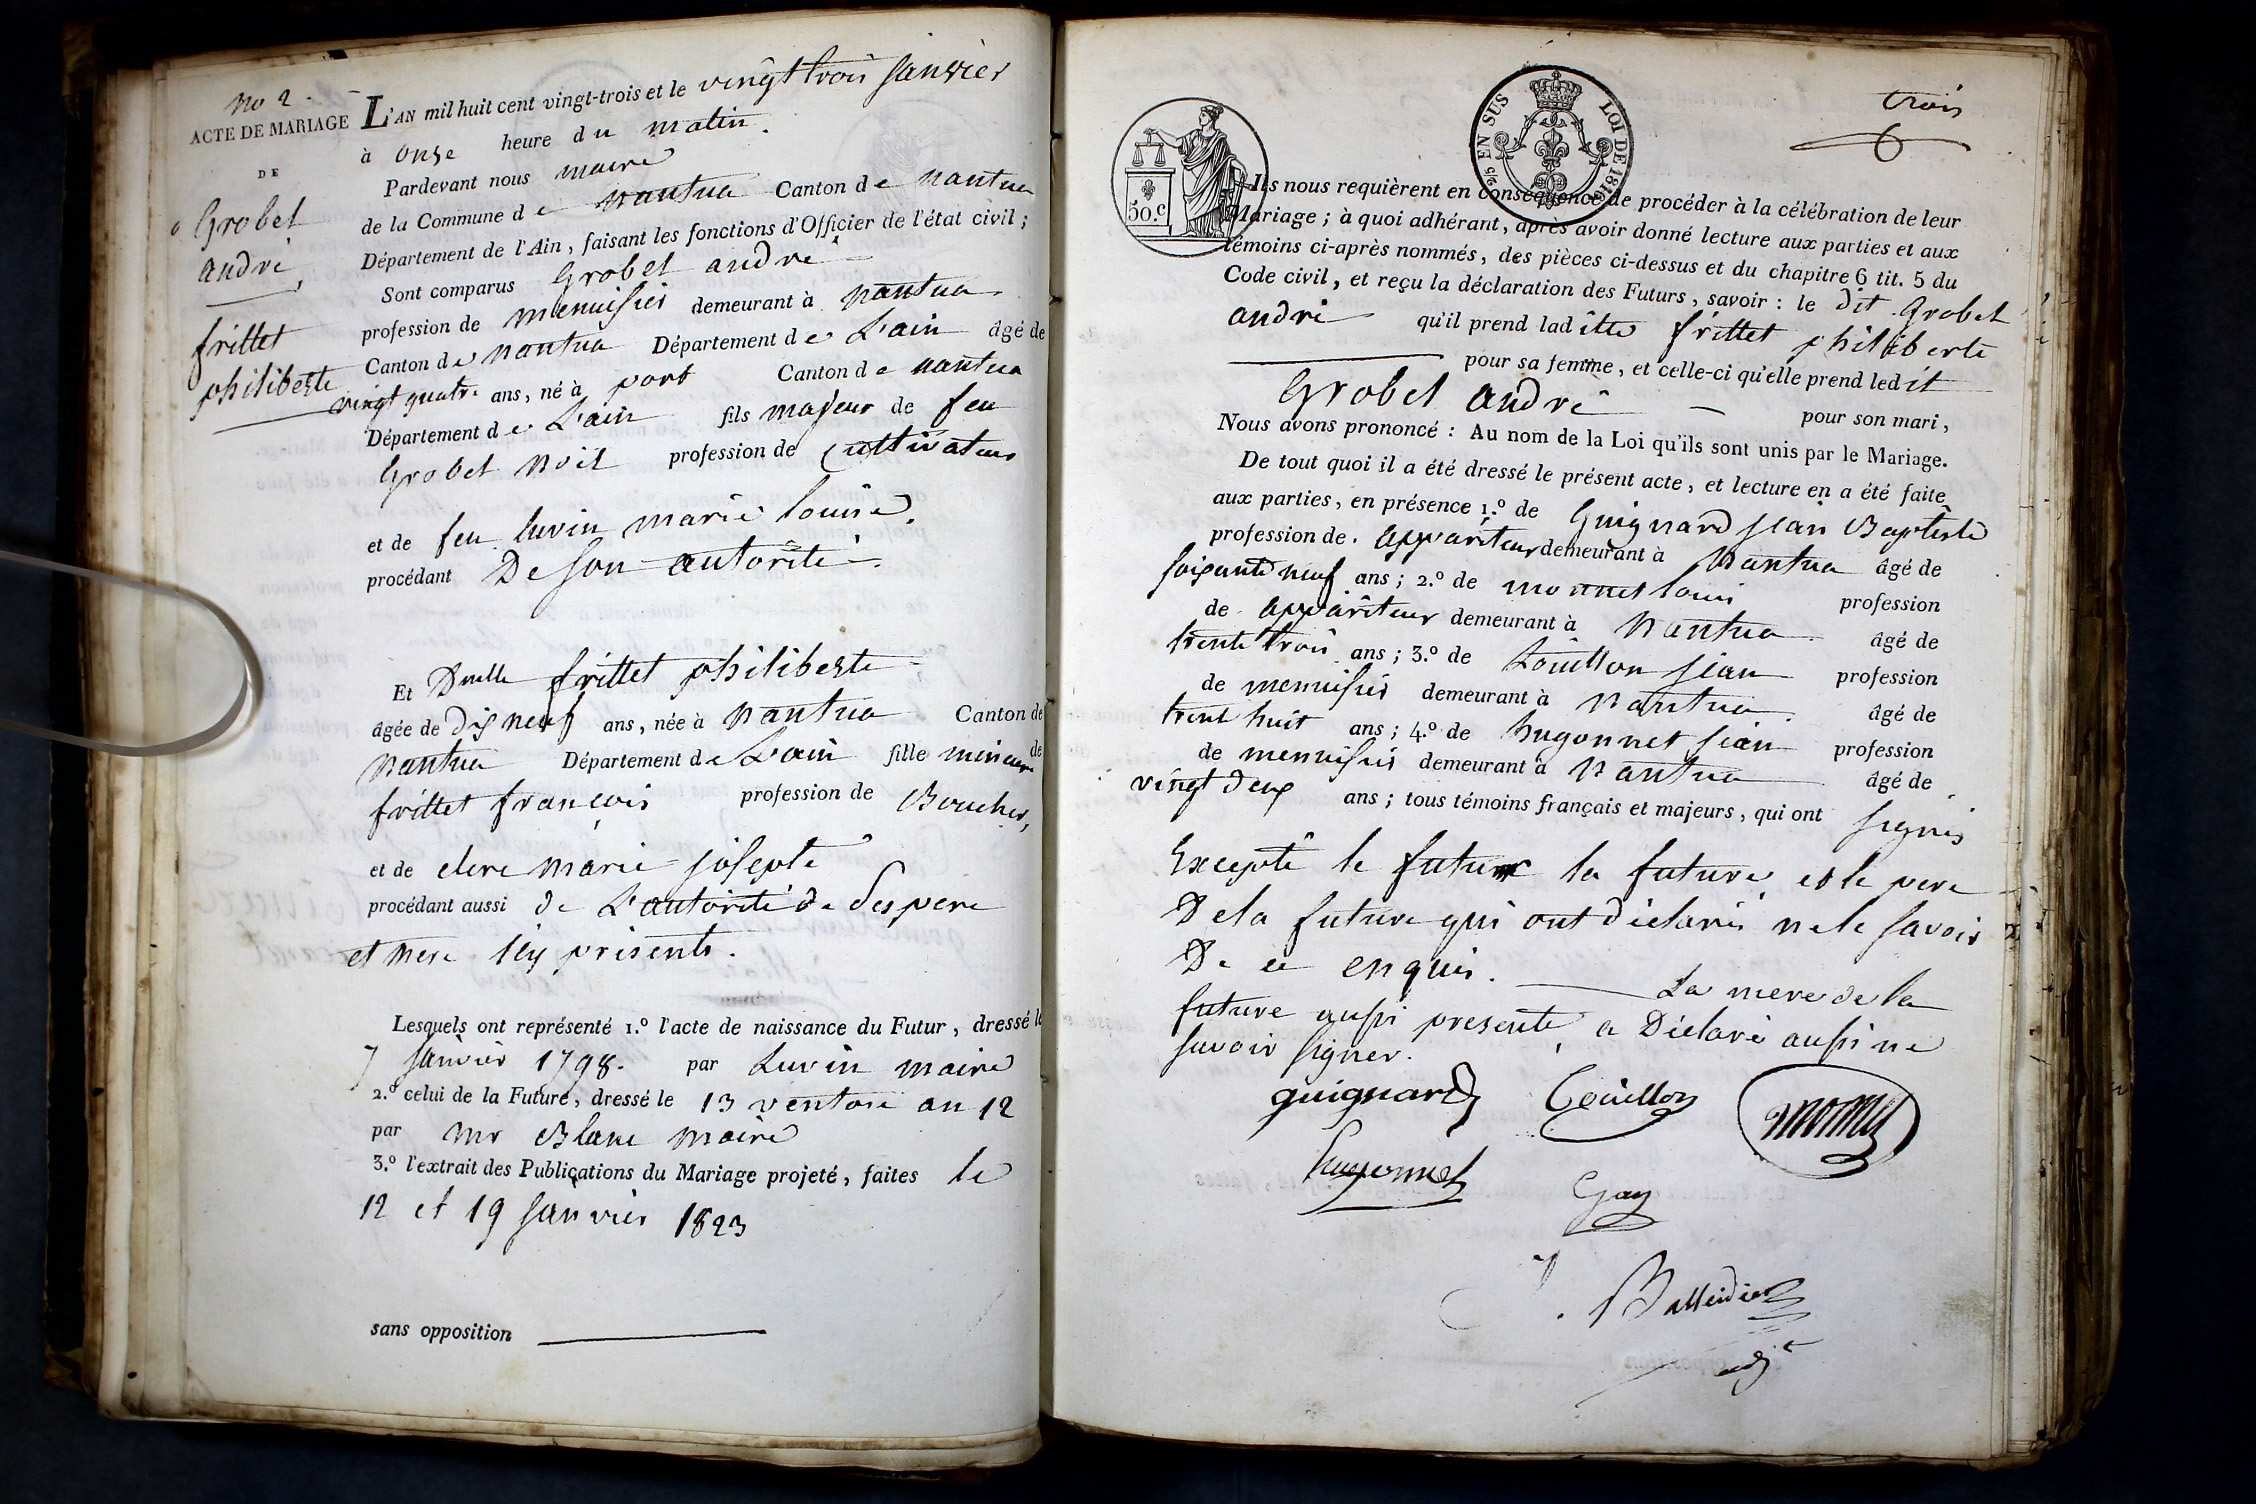 No 2.
ACTE DE MARIAGE
DE
Grobet
andré
frittet
philiberte
L'AN mil huit cent vingt-trois et le vingt trois janvier
à onze heure du matin.
Pardevant nous maire
de la Commune de nantua Canton de nantua
Département de l'Ain, faisant les fonctions d'Officier de l'état civil ;
Sont comparus Grobet andré
profession de menuisier demeurant à nantua
Canton de nantua Département de L'ain âgé de
vingt quatre ans, né à port Canton de nantua
Département de L'ain fils majeur de feu
Grobet noël profession de cultivateur
et de feu luvin marie louise,
procédant De son autorité.
Et Dmelle frittet philiberte
âgée de dix neuf ans, née à nantua Canton de
nantua Département de L'ain fille mineure de
frittet françois profession de Boucher,
et de clere marie josepte
procédant aussi de L'autorité de ses pere
et mere icy présents.
Lesquels ont représenté 1.º l'acte de naissance du Futur, dressé le
7 janvier 1798. par Luvin maire
2.º celui de la Future, dressé le 13 ventose an 12
par mr Blanc maire
3.º l'extrait des Publications du Mariage projeté, faites le
12 et 19 janvier 1823
sans opposition
trois
50.c
25/c EN SUS LOI DE 1816
Ils nous requièrent en conséquence de procéder à la célébration de leur
Mariage ; à quoi adhérant, après avoir donné lecture aux parties et aux
témoins ci-après nommés, des pièces ci-dessus et du chapitre 6 tit. 5 du
Code civil, et reçu la déclaration des Futurs, savoir : le dit Grobet
andré qu'il prend ladite frittet philiberte
pour sa femme, et celle-ci qu'elle prend ledit
Grobet andré pour son mari,
Nous avons prononcé : Au nom de la Loi qu'ils sont unis par le Mariage.
De tout quoi il a été dressé le présent acte, et lecture en a été faite
aux parties, en présence 1.º de Guignard jean Baptiste
profession de appariteur demeurant à Nantua âgé de
soixante neuf ans ; 2.º de monnet louis profession
de appariteur demeurant à Nantua âgé de
trente trois ans ; 3.º de Touillon jean profession
de menuisier demeurant à nantua. âgé de
trent huit ans ; 4.º de hugonnet jean profession
de menuisier demeurant à nantua âgé de
vingt deux ans ; tous témoins français et majeurs, qui ont signés
Excepté le futur la future et le pere
De la future qui ont déclarés ne le savoir
De ce enquis. La mere de la
future aussi presente a Déclaré aussi ne
savoir signer.
guignard Touillon monnet
hugonnet Gay